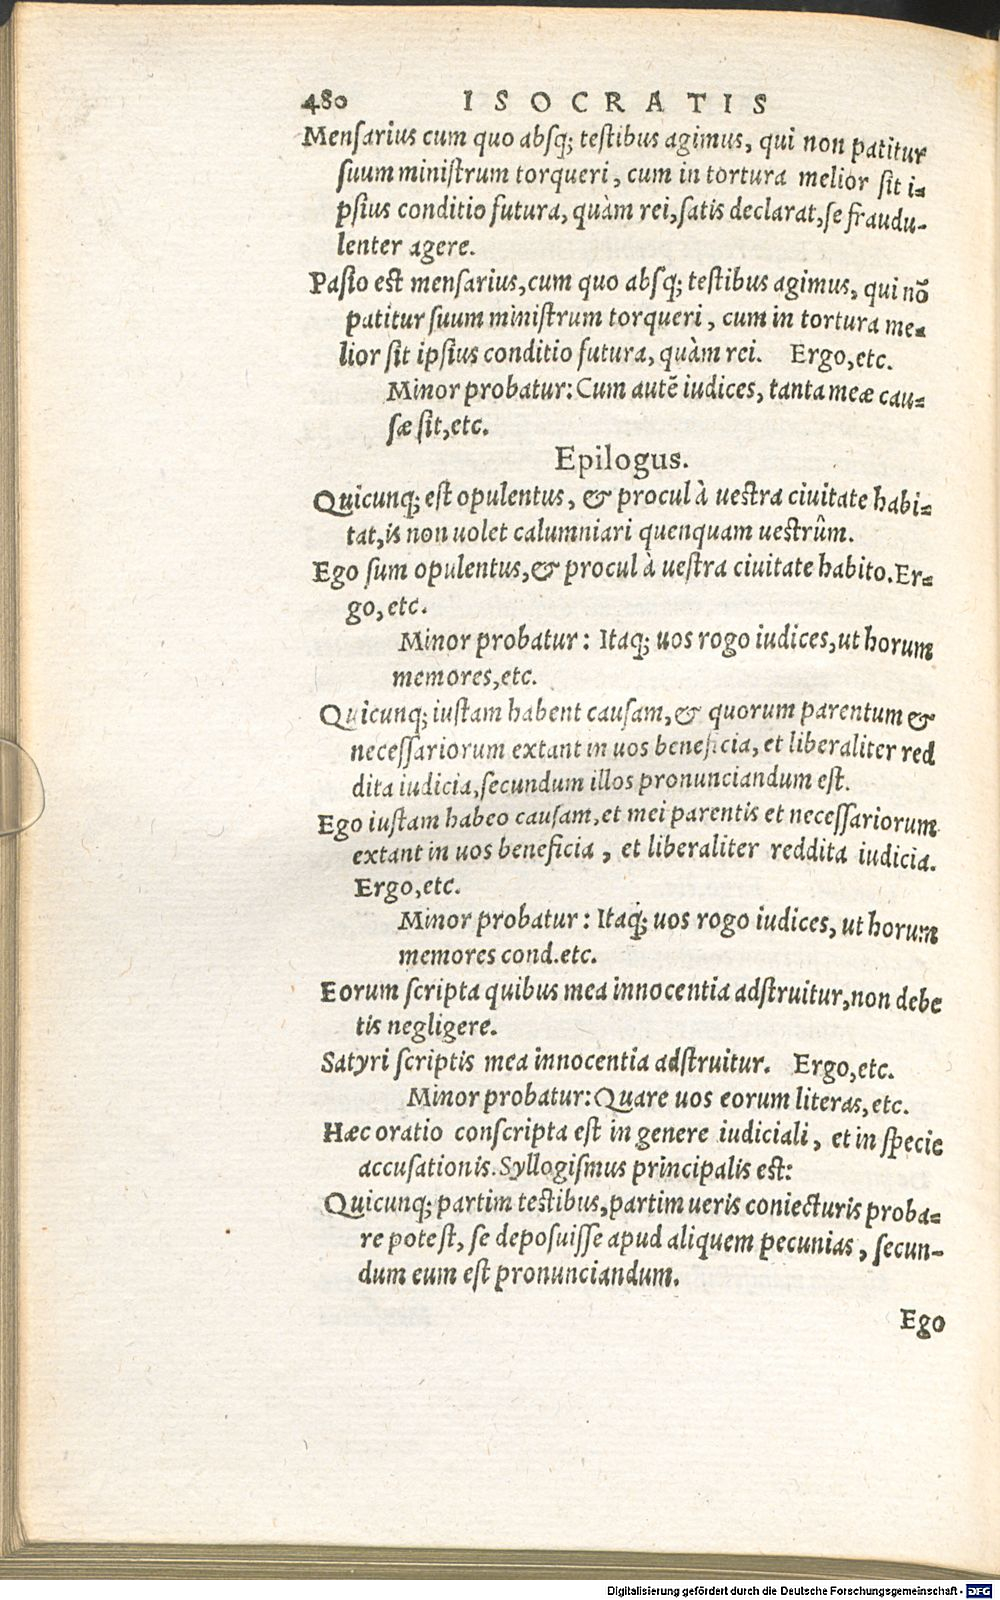 480 ISOCRATIS
Mensarius cum quo absq; testibus agimus, qui non patitur
suum ministrum torqueri, cum in tortura melior sit i-
psius conditio futura, quàm rei, satis declarat, se fraudu-
lenter agere.
Pasio est mensarius, cum quo absq; testibus agimus, qui nõ
patitur suum ministrum torqueri, cum in tortura me-
lior sit ipsius conditio futura, quàm rei. Ergo, etc.
Minor probatur: Cum autẽ iudices, tanta meæ cau-
sæ sit, etc.
Epilogus.
Quicunq; est opulentus, & procul à uestra ciuitate habi-
tat, is non uolet calumniari quenquam uestrûm.
Ego sum opulentus, & procul à uestra ciuitate habito. Er-
go, etc.
Minor probatur: Itaq; uos rogo iudices, ut horum
memores, etc.
Quicunq; iustam habent causam, & quorum parentum &
necessariorum extant in uos beneficia, et liberaliter red
dita iudicia, secundum illos pronunciandum est.
Ego iustam habeo causam, et mei parentis et necessariorum
extant in uos beneficia, et liberaliter reddita iudicia.
Ergo, etc.
Minor probatur: Itaq; uos rogo iudices, ut horum
memores cond. etc.
Eorum scripta quibus mea innocentia adstruitur, non debe
tis negligere.
Satyri scriptis mea innocentia adstruitur. Ergo, etc.
Minor probatur: Quare uos eorum literas, etc.
Hæc oratio conscripta est in genere iudiciali, et in specie
accusationis. Syllogismus principalis est:
Quicunq; partim testibus, partim ueris coniecturis proba-
re potest, se deposuisse apud aliquem pecunias, secun-
dum eum est pronunciandum.
Ego
Digitalisierung gefördert durch die Deutsche Forschungsgemeinschaft - DFG